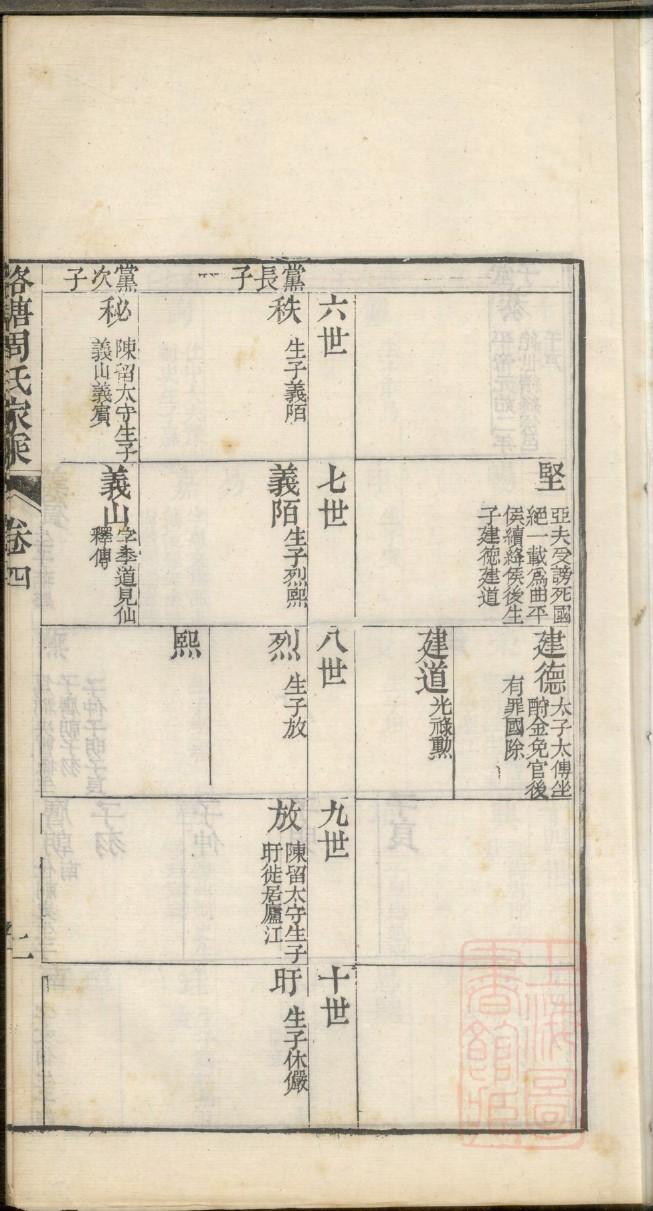 堅
亞夫受謗死國
絕一載為曲平
侯續絳侯後生
子建德建道
建德
太子太傅坐
酎金免官後
有罪國除
建道
光祿勲
六世
七世
八世
九世
十世
黨長子
秩
生子義陌
義陌
生子烈熙
烈
生子放
熙
放
陳留太守生子
盱徙居廬江
盱
生子休儼
黨次子
秘
陳留太守生子
義山義賓
義山
字季道見仙
釋傳
洛塘周氏家乘
卷四
二
上海圖書館藏